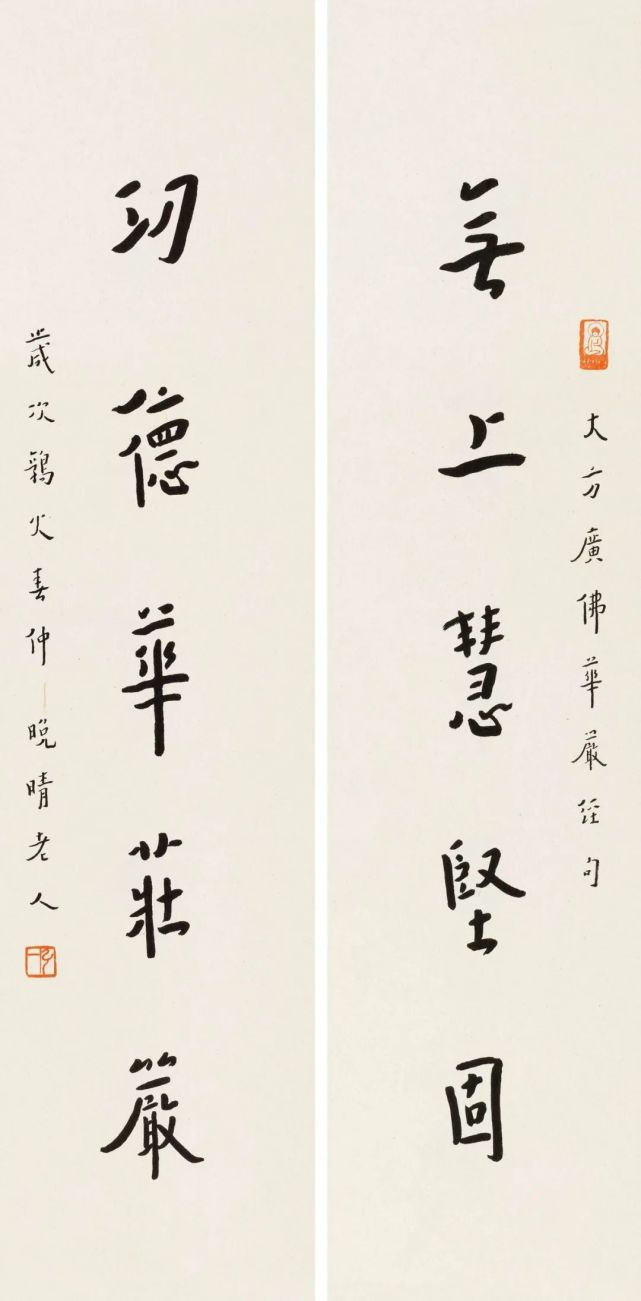 大方廣佛華嚴經句
無上慧堅固
功德華莊嚴
歲次鶉火春仲 晚晴老人